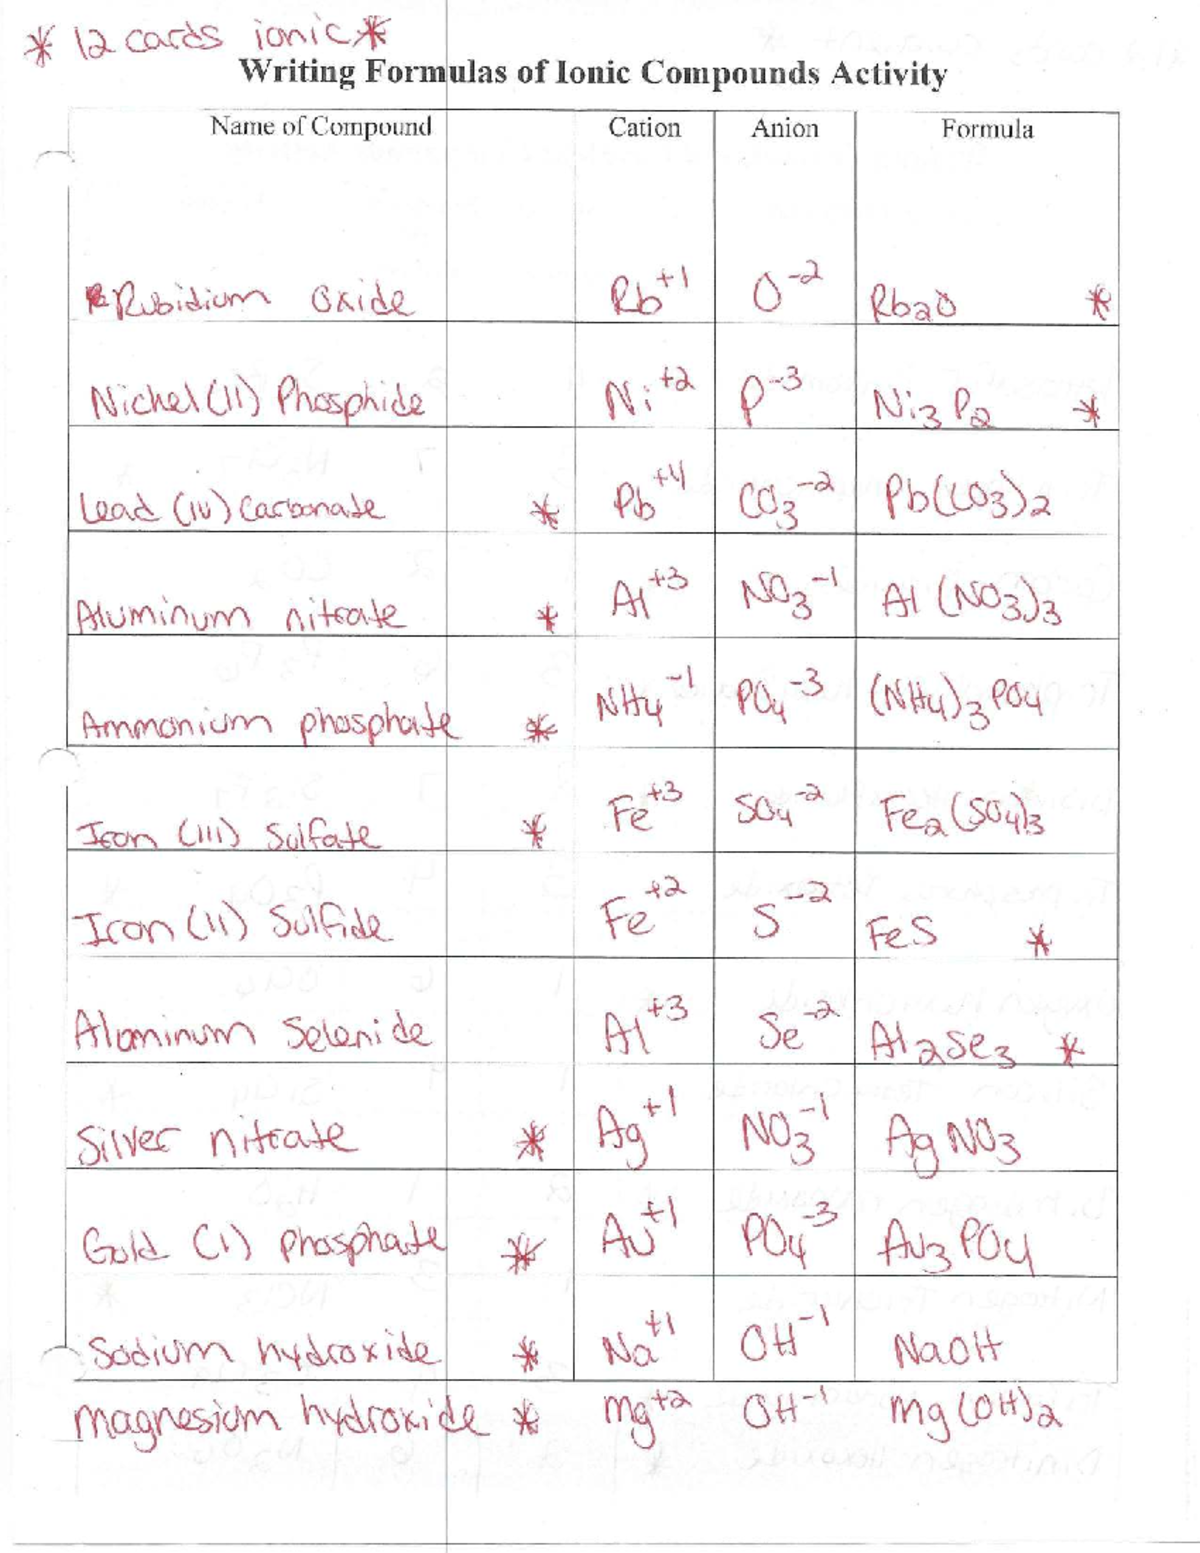 * 12 cards ionic *
Writing Formulas of Ionic Compounds Activity
Name of Compound Cation Anion Formula
Rubidium Oxide Rb+1 O-2 Rb2O *
Nickel (II) Phosphide Ni+2 P-3 Ni3P2 *
Lead (IV) Carbonate * Pb+4 CO3-2 Pb(CO3)2
Aluminum nitrate * Al+3 NO3-1 Al(NO3)3
Ammonium phosphate * NH4-1 PO4-3 (NH4)3PO4
Iron (III) Sulfate * Fe+3 SO4-2 Fe2(SO4)3
Iron (II) Sulfide Fe+2 S-2 FeS *
Aluminum Selenide Al+3 Se-2 Al2Se3 *
Silver nitrate * Ag+1 NO3-1 AgNO3
Gold (I) phosphate * Au+1 PO4-3 Au3PO4
Sodium hydroxide * Na+1 OH-1 NaOH
magnesium hydroxide * mg+2 OH-1 mg(OH)2